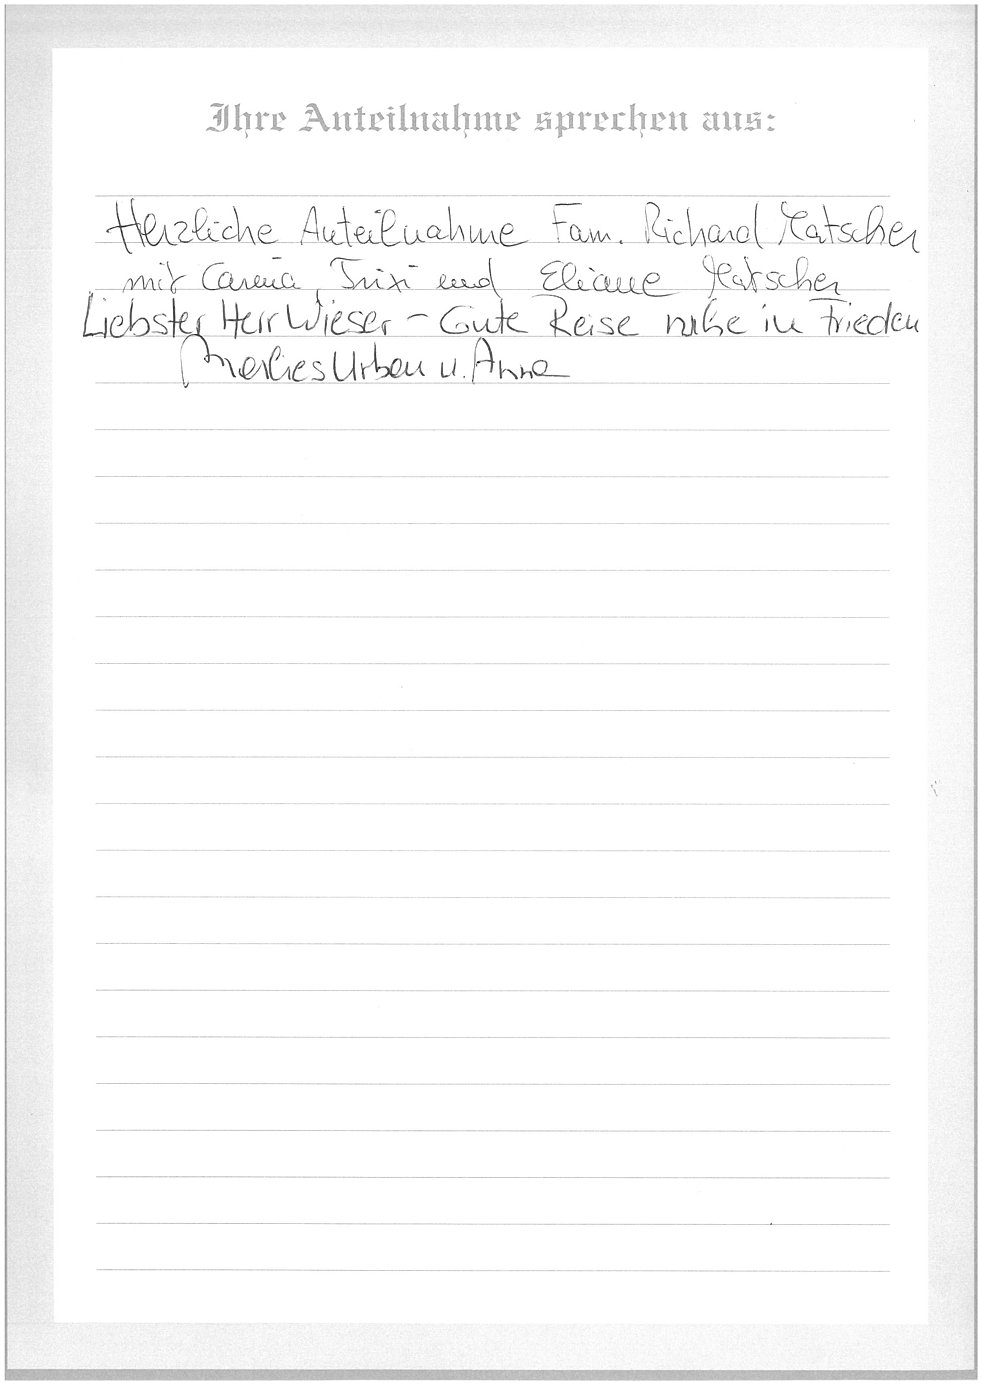 Ihre Anteilnahme sprechen aus:
Herzliche Anteilnahme Fam. Richard Matscher
mit Carina, Trixi und Eliane Matscher
Liebster Herr Wieser – Gute Reise ruhe in Frieden
Marlies Urban u. Anna